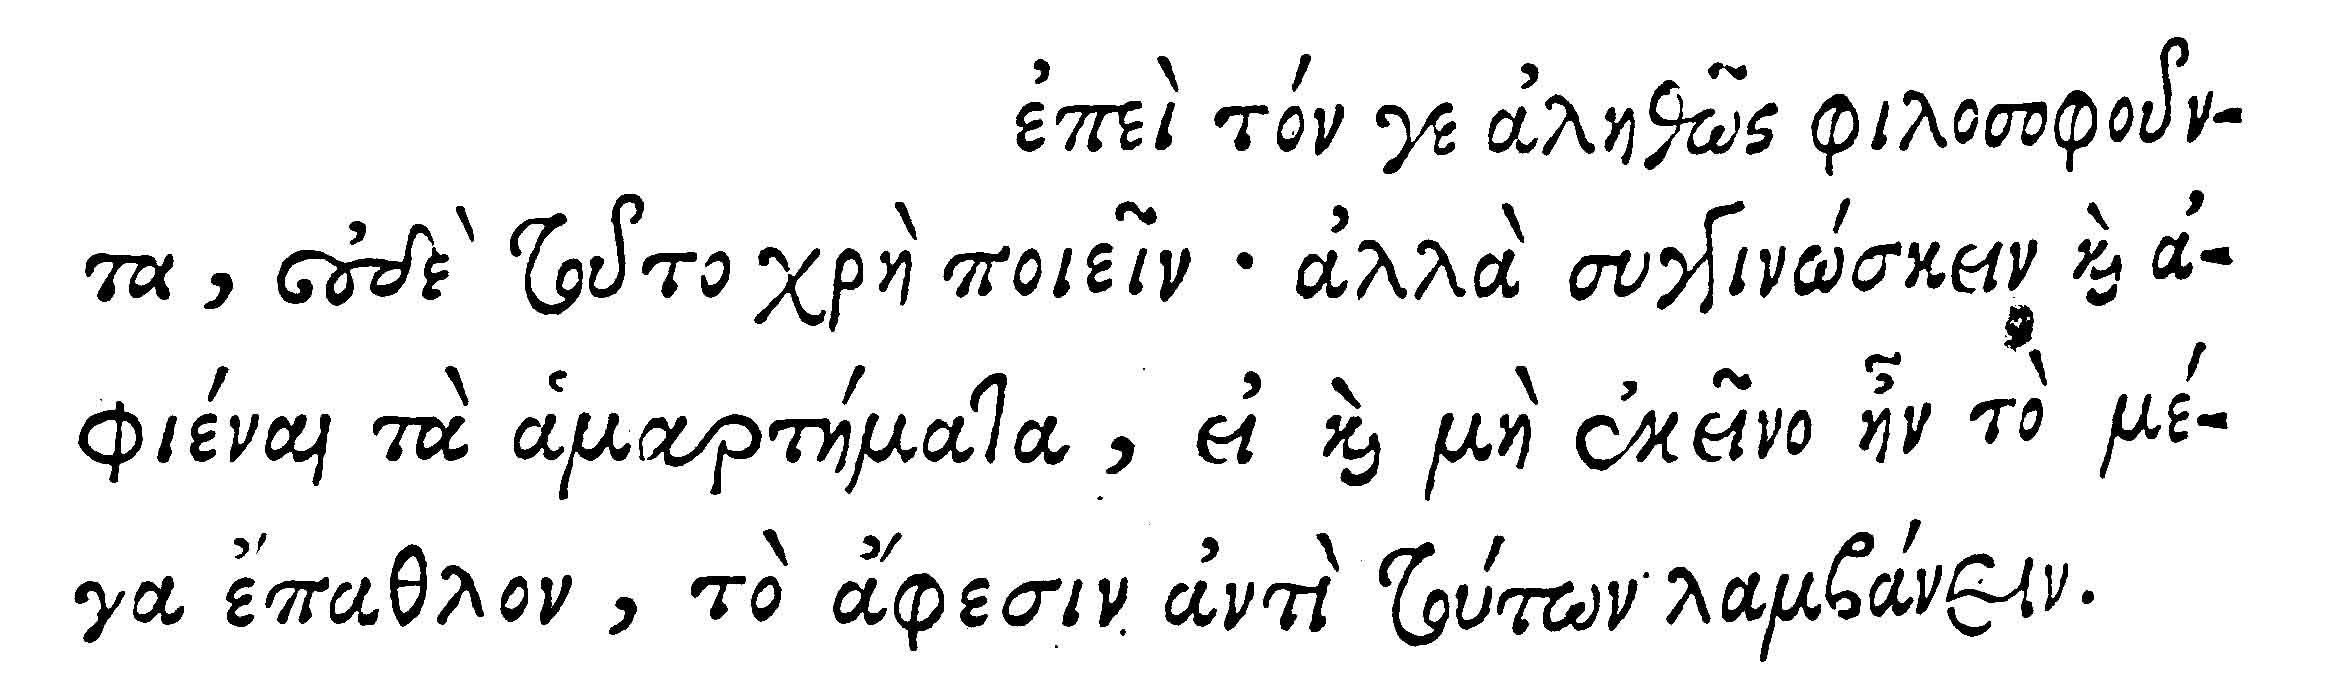 ἐπεὶ τόν γε ἀληθῶς φιλοσοφοῦν-
τα, οὐδὲ τοῦτο χρὴ ποιεῖν · ἀλλὰ συγγινώσκειν καὶ ἀ-
φιέναι τὰ ἁμαρτήματα, εἰ καὶ μὴ ἐκεῖνο ἦν τὸ μέ-
γα ἔπαθλον, τὸ ἄφεσιν ἀντὶ τούτων λαμβάνειν.